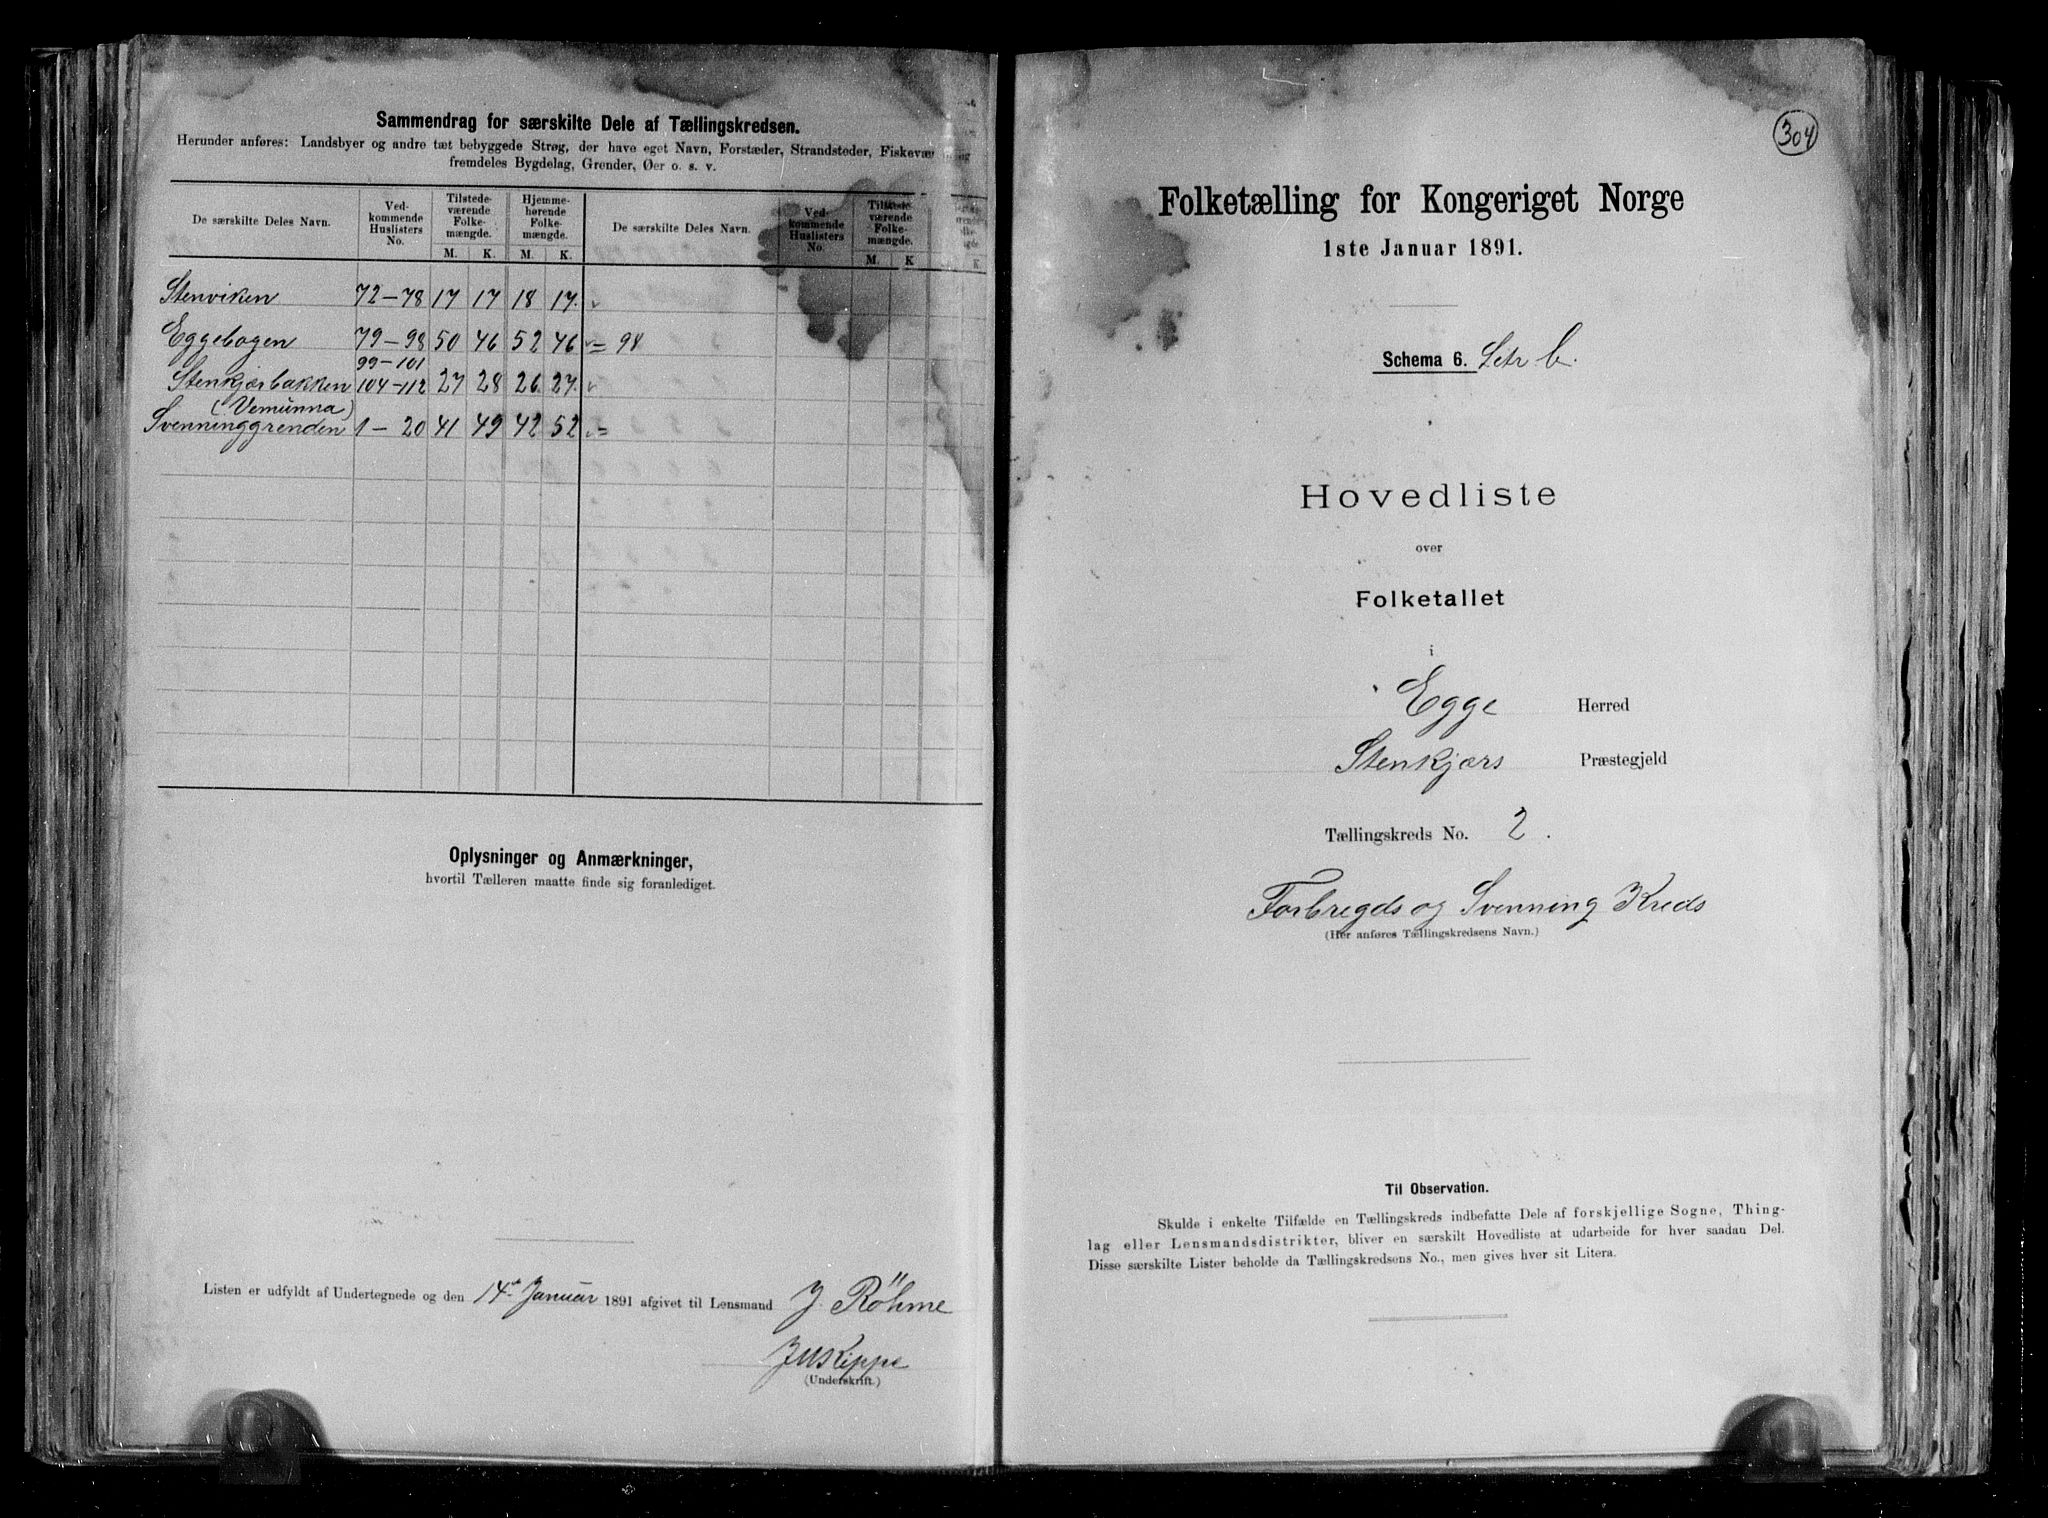 Sammendrag for særskilte Dele af Tællingskredsen.
Herunder anføres: Landsbyer og andre tæt bebyggede Strøg, der have eget Navn, Forstæder, Strandsteder, Fiskevær og
fremdeles Bygdelag, Grender, Øer o. s. v.
De særskilte Deles Navn. Ved-kommende Huslisters No. Tilstede-værende Folke-mængde. Hjemme-hørende Folke-mængde. De særskilte Deles Navn. Ved-kommende Huslisters No. Tilstede-værende Folke-mængde.
M. K. M. K. M. K K.
Stenviken 72-78 17 17 18 17.
Eggebogen 79-98 50 46 52 46 = 98
99-101
Stenkjærbakken 104-112 27 28 26 27.
(Vemunna)
Svenninggrenden 1-20 41 49 42 52 =
Oplysninger og Anmærkninger,
hvortil Tælleren maatte finde sig foranlediget.
Listen er udfyldt af Undertegnede og den 14de Januar 1891 afgivet til Lensmand J. Röhme
(Underskrift.)
304
Folketælling for Kongeriget Norge
1ste Januar 1891.
Schema 6. Litr b.
Hovedliste
over
Folketallet
i
Egge Herred
Stenkjærs Præstegjeld
Tællingskreds No. 2.
Forbregds og Svenning Kreds
(Her anføres Tællingskredsens Navn.)
Til Observation.
Skulde i enkelte Tilfælde en Tællingskreds indbefatte Dele af forskjellige Sogne, Thing-
lag eller Lensmandsdistrikter, bliver en særskilt Hovedliste at udarbeide for hver saadan Del.
Disse særskilte Lister beholde da Tællingskredsens No., men gives hver sit Litera.